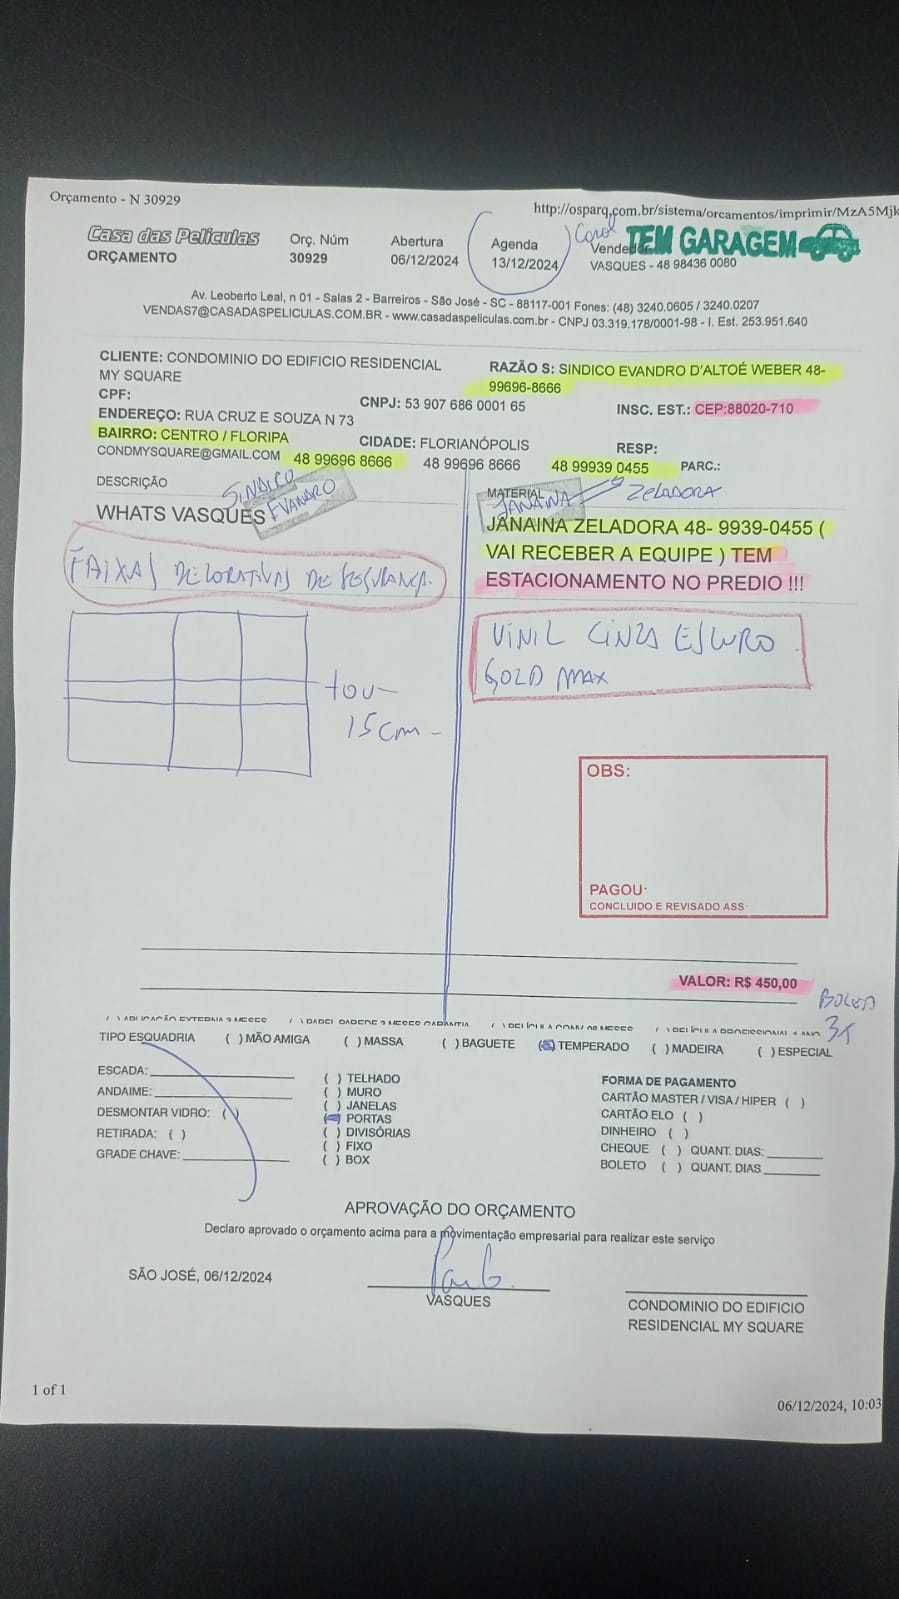 Orçamento - N 30929
http://osparq.com.br/sistema/orcamentos/imprimir/MzA5Mjk
Casa das Peliculas
ORÇAMENTO
Orç. Núm
30929
Abertura
06/12/2024
Agenda
13/12/2024
Carol
Vendedor
TEM GARAGEM
VASQUES - 48 98436 0080
Av. Leoberto Leal, n 01 - Salas 2 - Barreiros - São José - SC - 88117-001 Fones: (48) 3240.0605 / 3240.0207
VENDAS7@CASADASPELICULAS.COM.BR - www.casadaspeliculas.com.br - CNPJ 03.319.178/0001-98 - I. Est. 253.951.640
CLIENTE: CONDOMINIO DO EDIFICIO RESIDENCIAL
MY SQUARE
RAZÃO S: SINDICO EVANDRO D'ALTOÉ WEBER 48-
99696-8666
CPF:
CNPJ: 53 907 686 0001 65
INSC. EST.: CEP:88020-710
ENDEREÇO: RUA CRUZ E SOUZA N 73
BAIRRO: CENTRO / FLORIPA
CIDADE: FLORIANÓPOLIS
RESP:
CONDMYSQUARE@GMAIL.COM 48 99696 8666 48 99696 8666 48 99939 0455 PARC.:
DESCRIÇÃO
SINDICO
EVANDRO
MATERIAL
JANAINA
ZELADORA
WHATS VASQUES
JANAINA ZELADORA 48- 9939-0455 (
VAI RECEBER A EQUIPE ) TEM
ESTACIONAMENTO NO PREDIO !!!
FAIXAS DECORATIVAS DE SEGURANÇA.
VINIL CINZA ESCURO
GOLD MAX
15cm -
OBS:
PAGOU:
CONCLUIDO E REVISADO ASS:
VALOR: R$ 450,00
BOLETO
3X
( ) APLICAÇÃO EXTERNA 3 MESES ( ) PAPEL PAREDE 3 MESES GARANTIA ( ) PELÍCULA PROFISSIONAL 1 ANO
TIPO ESQUADRIA ( ) MÃO AMIGA ( ) MASSA ( ) BAGUETE ( ) TEMPERADO ( ) MADEIRA ( ) ESPECIAL
ESCADA:
ANDAIME:
DESMONTAR VIDRO: ( )
RETIRADA: ( )
GRADE CHAVE:
( ) TELHADO
( ) MURO
( ) JANELAS
( ) PORTAS
( ) DIVISÓRIAS
( ) FIXO
( ) BOX
FORMA DE PAGAMENTO
CARTÃO MASTER / VISA / HIPER ( )
CARTÃO ELO ( )
DINHEIRO ( )
CHEQUE ( ) QUANT. DIAS:
BOLETO ( ) QUANT. DIAS
APROVAÇÃO DO ORÇAMENTO
Declaro aprovado o orçamento acima para a movimentação empresarial para realizar este serviço
SÃO JOSÉ, 06/12/2024
VASQUES
CONDOMINIO DO EDIFICIO
RESIDENCIAL MY SQUARE
1 of 1
06/12/2024, 10:03